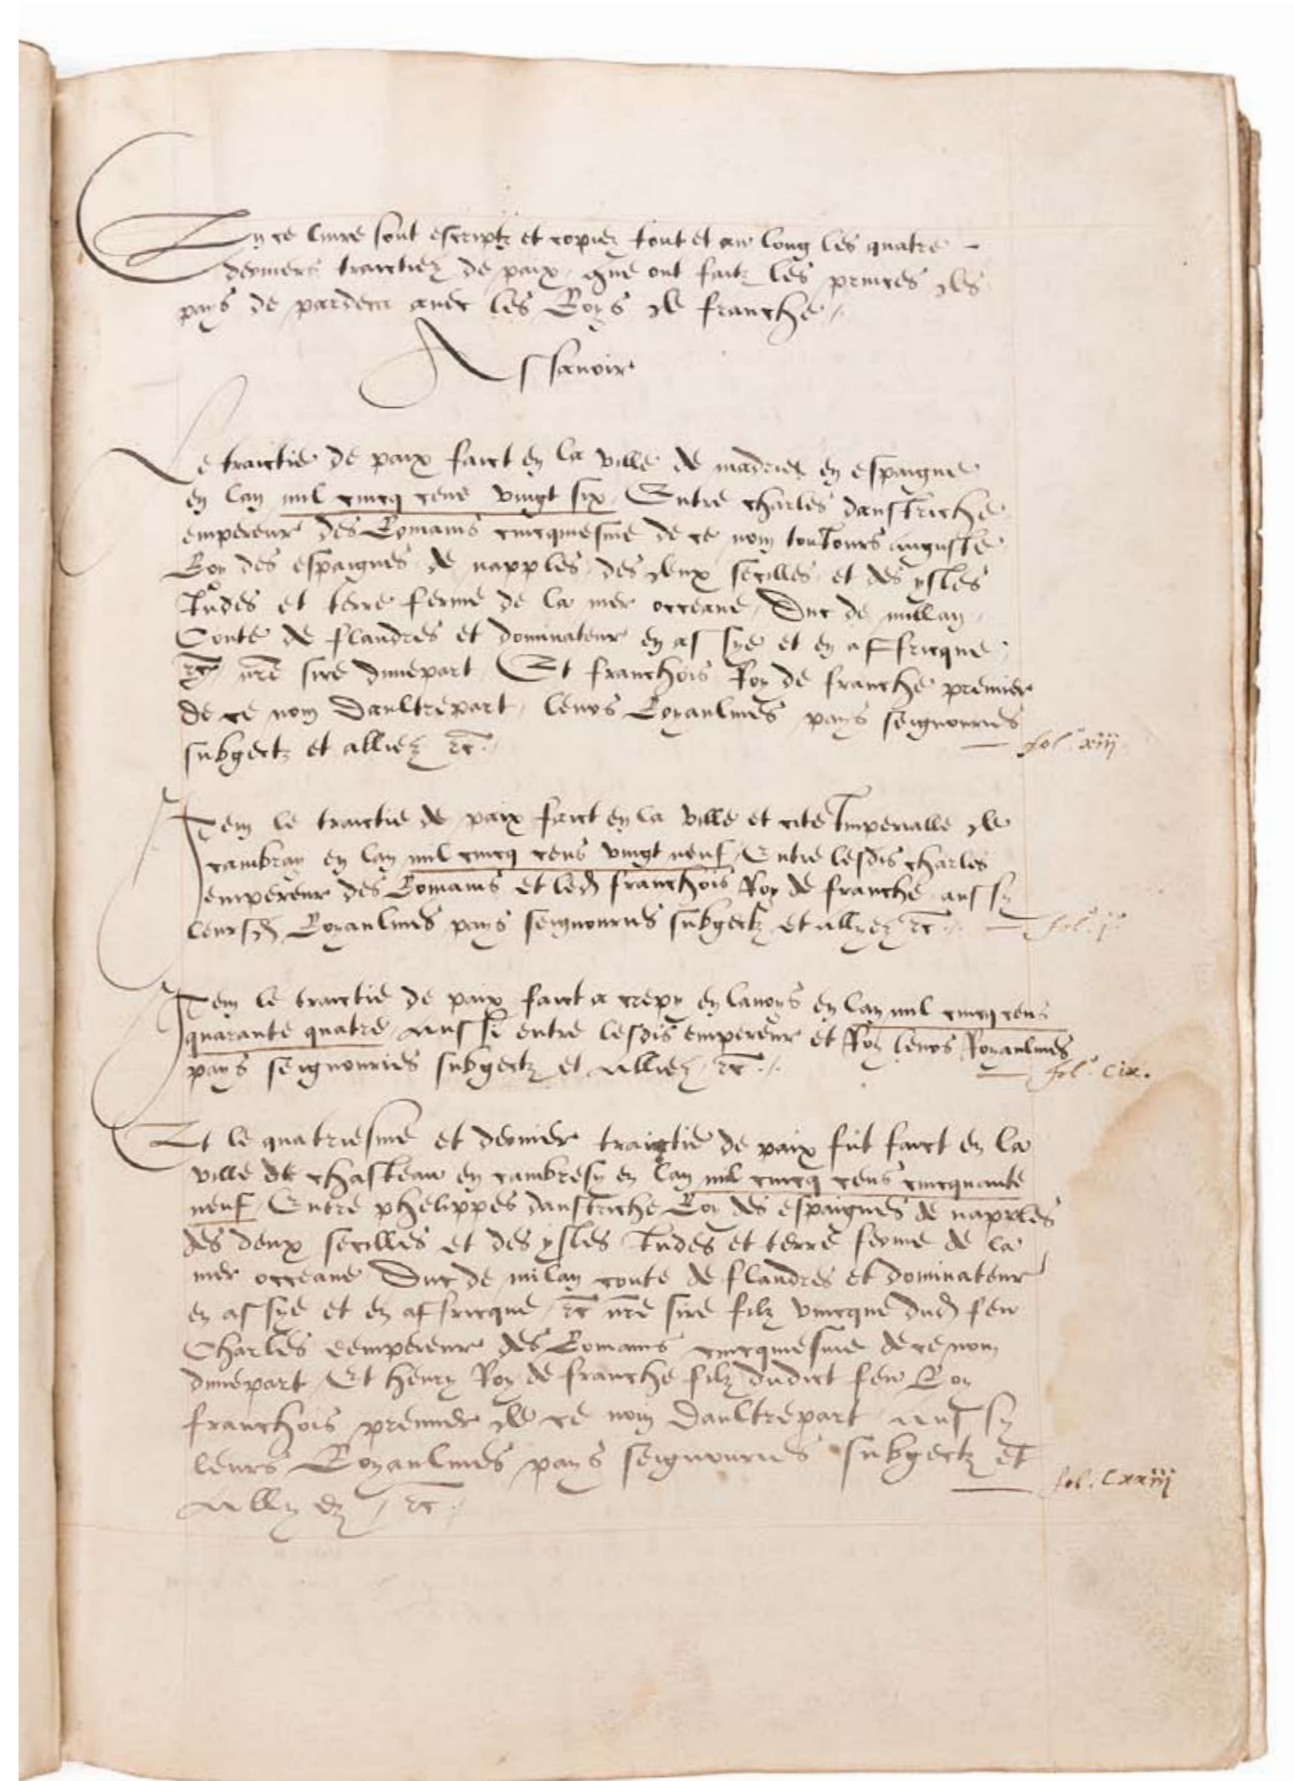 En ce livre sont escriptz et copiez tout et au long les quatre
derniers traictiez de paix que ont faitz les princes des
pays de pardeca avec les Roys de franche
Assavoir
Le traictie de paix faict en la ville de madric en espaigne
en lan mil cincq cens vingt six Entre charles daustriche
empereur des Romains cincquiesme de ce nom tousiours auguste
Roy des espaignes de napples des deux secilles et des ysles
Indes et terre ferme de la mer occeane Duc de millan
Conte de flandres et dominateur en assye et en affricque
etc nre sire dunepart Et franchois Roy de franche premier
de ce nom Daultrepart leurs Royaulmes pays seignouries
subgectz et alliez etc.
fol. xiij
Item le traictie de paix faict en la ville et cite Imperialle de
cambray en lan mil cincq cens vingt neuf Entre lesdis charles
empereur des Romains et led franchois Roy de franche aussy
leursd Royaulmes pays seignouries subgectz et allyez etc.
fol.
Item le traictie de paix faict a crepy en lanoys en lan mil cincq cens
quarante quatre Aussi entre lesdis empereur et Roy leurs Royaulmes
pays seignouries subgectz et Alliez etc.
fol. Cix.
Et le quatriesme et dernier traictie de paix fut faict en la
ville de chasteau en cambresy en lan mil cincq cens cincquante
neuf Entre phelippes daustriche Roy des espaignes de napples
des deux secilles et des ysles Indes et terre ferme de la
mer occeane Duc de milan conte de flandres et dominateur
en assye et en affricque etc nre sire filz unicque dud feu
Charles eempereur des Romains cincquiesme de ce nom
dunepart Et henry Roy de franche filz dudict feu Roy
franchois premier de ce nom Daultrepart Aussy
leurs Royaulmes pays seignouries subgectz et
Allyez etc.
fol. Cxxiij